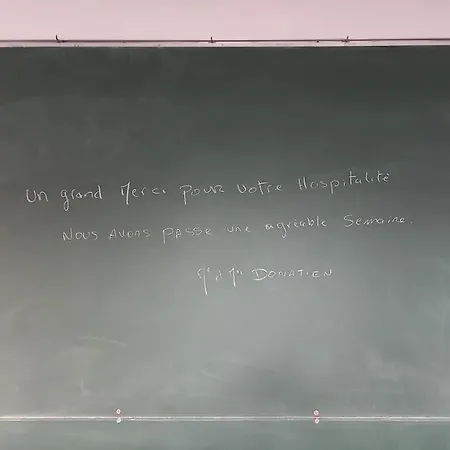 Un grand Merci pour votre Hospitalité
Nous Avons PASSE une agréable Semaine.
Mr & Me DONATIEN